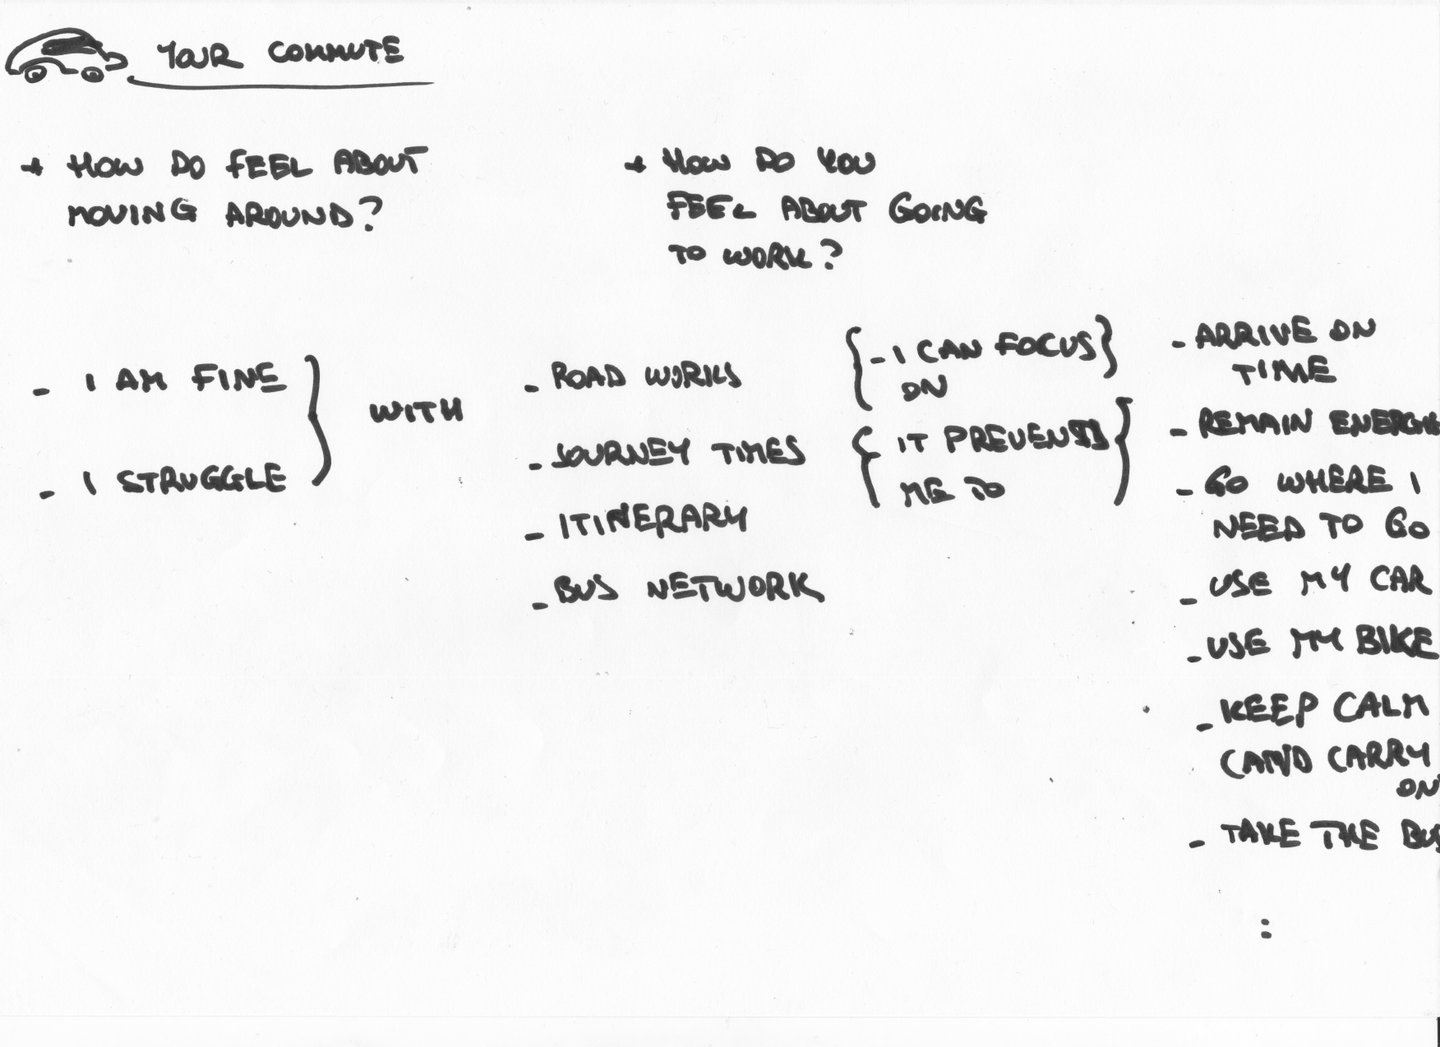 YOUR COMMUTE
* HOW DO FEEL ABOUT
MOVING AROUND?
* HOW DO YOU
FEEL ABOUT GOING
TO WORK?
- I AM FINE
- I STRUGGLE
WITH
- ROAD WORKS
- JOURNEY TIMES
- ITINERARY
- BUS NETWORK
- I CAN FOCUS
ON
IT PREVENTS
ME TO
- ARRIVE ON
TIME
- REMAIN
- GO WHERE I
NEED TO GO
- USE MY CAR
- USE MY BIKE
- KEEP CALM
(AND CARRY
ON
- TAKE THE BUS
: